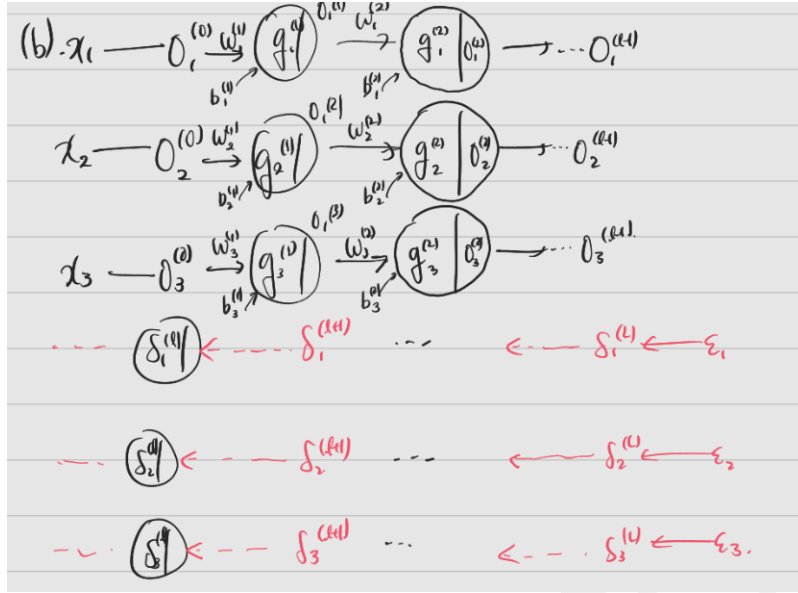 (b). x₁ — O₁⁽⁰⁾ W₁⁽¹⁾→ g₁⁽¹⁾| O₁⁽¹⁾ W₁⁽²⁾→ g₁⁽²⁾|O₁⁽²⁾ → ... O₁⁽ˡ⁻¹⁾
b₁⁽¹⁾ b₁⁽²⁾
x₂ — O₂⁽⁰⁾ W₂⁽¹⁾→ g₂⁽¹⁾| O₁⁽²⁾ W₂⁽²⁾→ g₂⁽²⁾|O₂⁽²⁾ → ... O₂⁽ˡ⁻¹⁾
b₂⁽¹⁾ b₂⁽²⁾
x₃ — O₃⁽⁰⁾ W₃⁽¹⁾→ g₃⁽¹⁾| O₁⁽³⁾ W₃⁽²⁾→ g₃⁽²⁾|O₃⁽²⁾ → ... O₃⁽ˡ⁻¹⁾.
b₃⁽¹⁾ b₃⁽²⁾
... δ₁⁽ˡ⁾| ← δ₁⁽ˡ⁺¹⁾ ... ← δ₁⁽ᴸ⁾ ← ε₁
... δ₂⁽ˡ⁾| ← δ₂⁽ˡ⁺¹⁾ ... ← δ₂⁽ᴸ⁾ ← ε₂
... δ₃⁽ˡ⁾| ← δ₃⁽ˡ⁺¹⁾ ... ← δ₃⁽ᴸ⁾ ← ε₃.